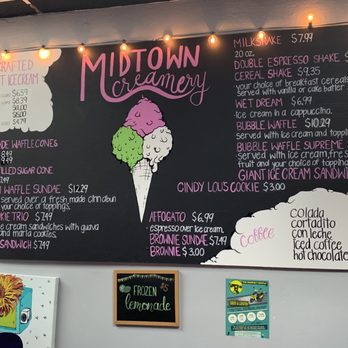 MIDTOWN
creamery
CRAFTED
ICE CREAM
$6.59
WAFFLE CONES
SUGAR CONE
WAFFLE SUNDAE $12.49
served over a fresh made cinnabun
your choice of toppings.
TRIO $7.49
ice cream sandwiches with guava
and maria cookies.
SANDWICH $7.49
AFFOGATO $6.99
espresso over ice cream.
BROWNIE SUNDAE $7.49
BROWNIE $3.00
MILKSHAKE $7.99
20 oz.
DOUBLE ESPRESSO SHAKE
CEREAL SHAKE $9.35
your choice of breakfast cereals
served with vanilla or cake batter
WET DREAM $6.99
Ice cream in a cappuccino.
BUBBLE WAFFLE $10.29
served with ice cream and toppings
BUBBLE WAFFLE SUPREME
served with ice cream, fresh
fruit and your choice of toppings
GIANT ICE CREAM SANDWICH
CINDY LOUS COOKIE $3.00
coffee
colada
cortadito
con leche
iced coffee
hot chocolate
FROZEN $5
lemonade